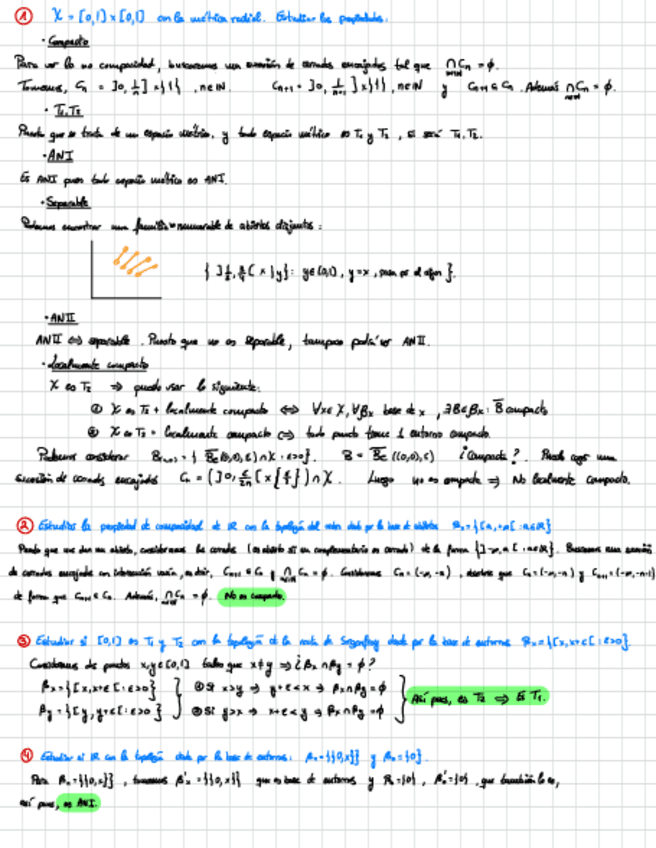 ① X = [0,1]×[0,1] con la métrica radial. Estudiar las propiedades:
· Compacto
Para ver la no compacidad, buscaremos una sucesión de cerrados encajados tal que ⋂Cn = ∅.
n∈ℕ
Tomamos, Cn = ]0, 1/n] × {1}, n∈ℕ Cn+1 = ]0, 1/n+1] × {1}, n∈ℕ y Cn+1 ⊆ Cn. Además ⋂Cn = ∅.
n∈ℕ
· T1, T2
Puesto que se trata de un espacio métrico, y todo espacio métrico es T1 y T2, sí será T1, T2.
· ANI
Es ANI pues todo espacio métrico es ANI.
· Separable
Podemos encontrar una familia numerable de abiertos disjuntos:
y=x, pasa por el
· ANII
ANII ⟺ separable. Puesto que no es separable, tampoco podrá ser ANII.
· Localmente compacto
X es T2 ⟹ puedo usar lo siguiente:
① X es T2 + localmente compacto ⟺ ∀x∈X, ∀βx base de x, ∃B∈βx : B̅ compacto
② X es T2 + localmente compacto ⟺ todo punto tiene 1 entorno compacto.
Podemos considerar ¿Compacto? Puedo coger una
sucesión de cerrados encajados Luego no es compacto ⟹ No localmente compacto.
② Estudiar la propiedad de compacidad de ℝ con la topología del orden dada por la base de abiertos
Puesto que me dan un abierto, consideramos los cerrados (es abierto si su complementario es cerrado) de la forma {]-∞, a[ : a∈ℝ}. Buscamos una sucesión
de cerrados encajados con intersección vacía, es decir, Cn+1 ⊆ Cn y ⋂Cn = ∅. Consideramos Cn = (-∞, -n), Cn = (-∞, -n) y Cn+1 = (-∞, -n-1)
n∈ℕ
de forma que Cn+1 ⊆ Cn. Además, ⋂Cn = ∅. No es compacto.
n∈ℕ
③ Estudiar si [0,1] es T1 y T2 con la topología de la recta de Sorgenfrey dada por la base de entornos βx = {[x, x+ε[ : ε>0}.
Consideramos dos puntos x,y∈[0,1] tales que x≠y ⟹ ¿βx∩βy = ∅?
βx = {[x, x+ε[ : ε>0} ① Si x>y ⟹ y+ε<x ⟹ βx∩βy = ∅
βy = {[y, y+ε[ : ε>0} ② Si y>x ⟹ x+ε<y ⟹ βx∩βy = ∅
Así pues, es T2 ⟹ Es T1.
④ Estudiar si ℝ con la topología dada por la base de entornos: βx = {{0,x}} y β0 = {0}.
Para βx = {{0,x}}, tomamos β'x = {{0,x}} que es base de entornos y β0 = {0}, β'0 = {0}, que también lo es,
así pues, es ANI.